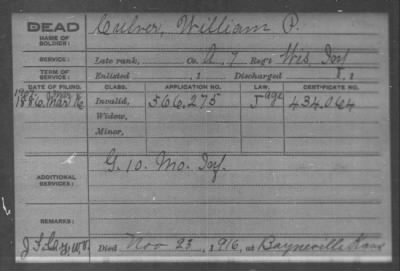 DEAD Culver, William P.
NAME OF SOLDIER:
SERVICE: Late rank, Co. A, 7 Reg't Wis. Inf
TERM OF SERVICE: Enlisted , 1 Discharged , 1
DATE OF FILING. CLASS. APPLICATION NO. LAW. CERTIFICATE NO.
1886, Mar 16 Invalid, 566.275 434.064
Widow,
Minor,
ADDITIONAL SERVICES: G. 10. Mo. Inf.
REMARKS:
Died Nov 23, 1916, at Bayneville Kans